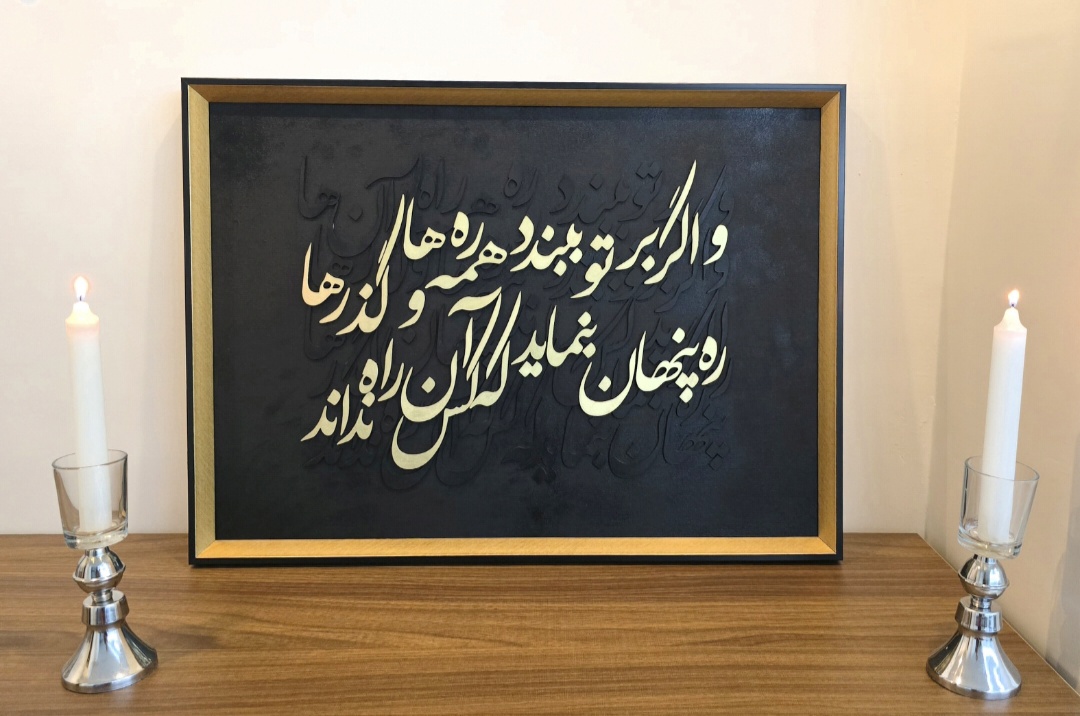 و اگر بر تو ببندد همه ره ها و گذرها
ره پنهان بنماید که کس آن راه نداند